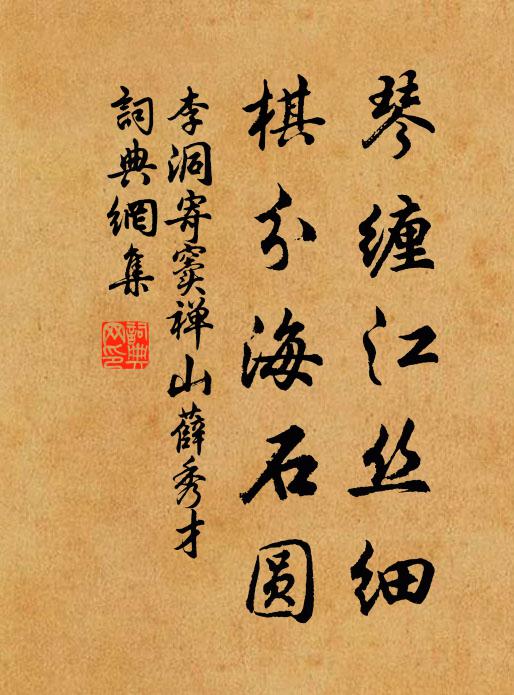 琴缠江丝细
棋分海石圆
李洞寄窦禅山薛秀才
詞典網集
詞典
网印